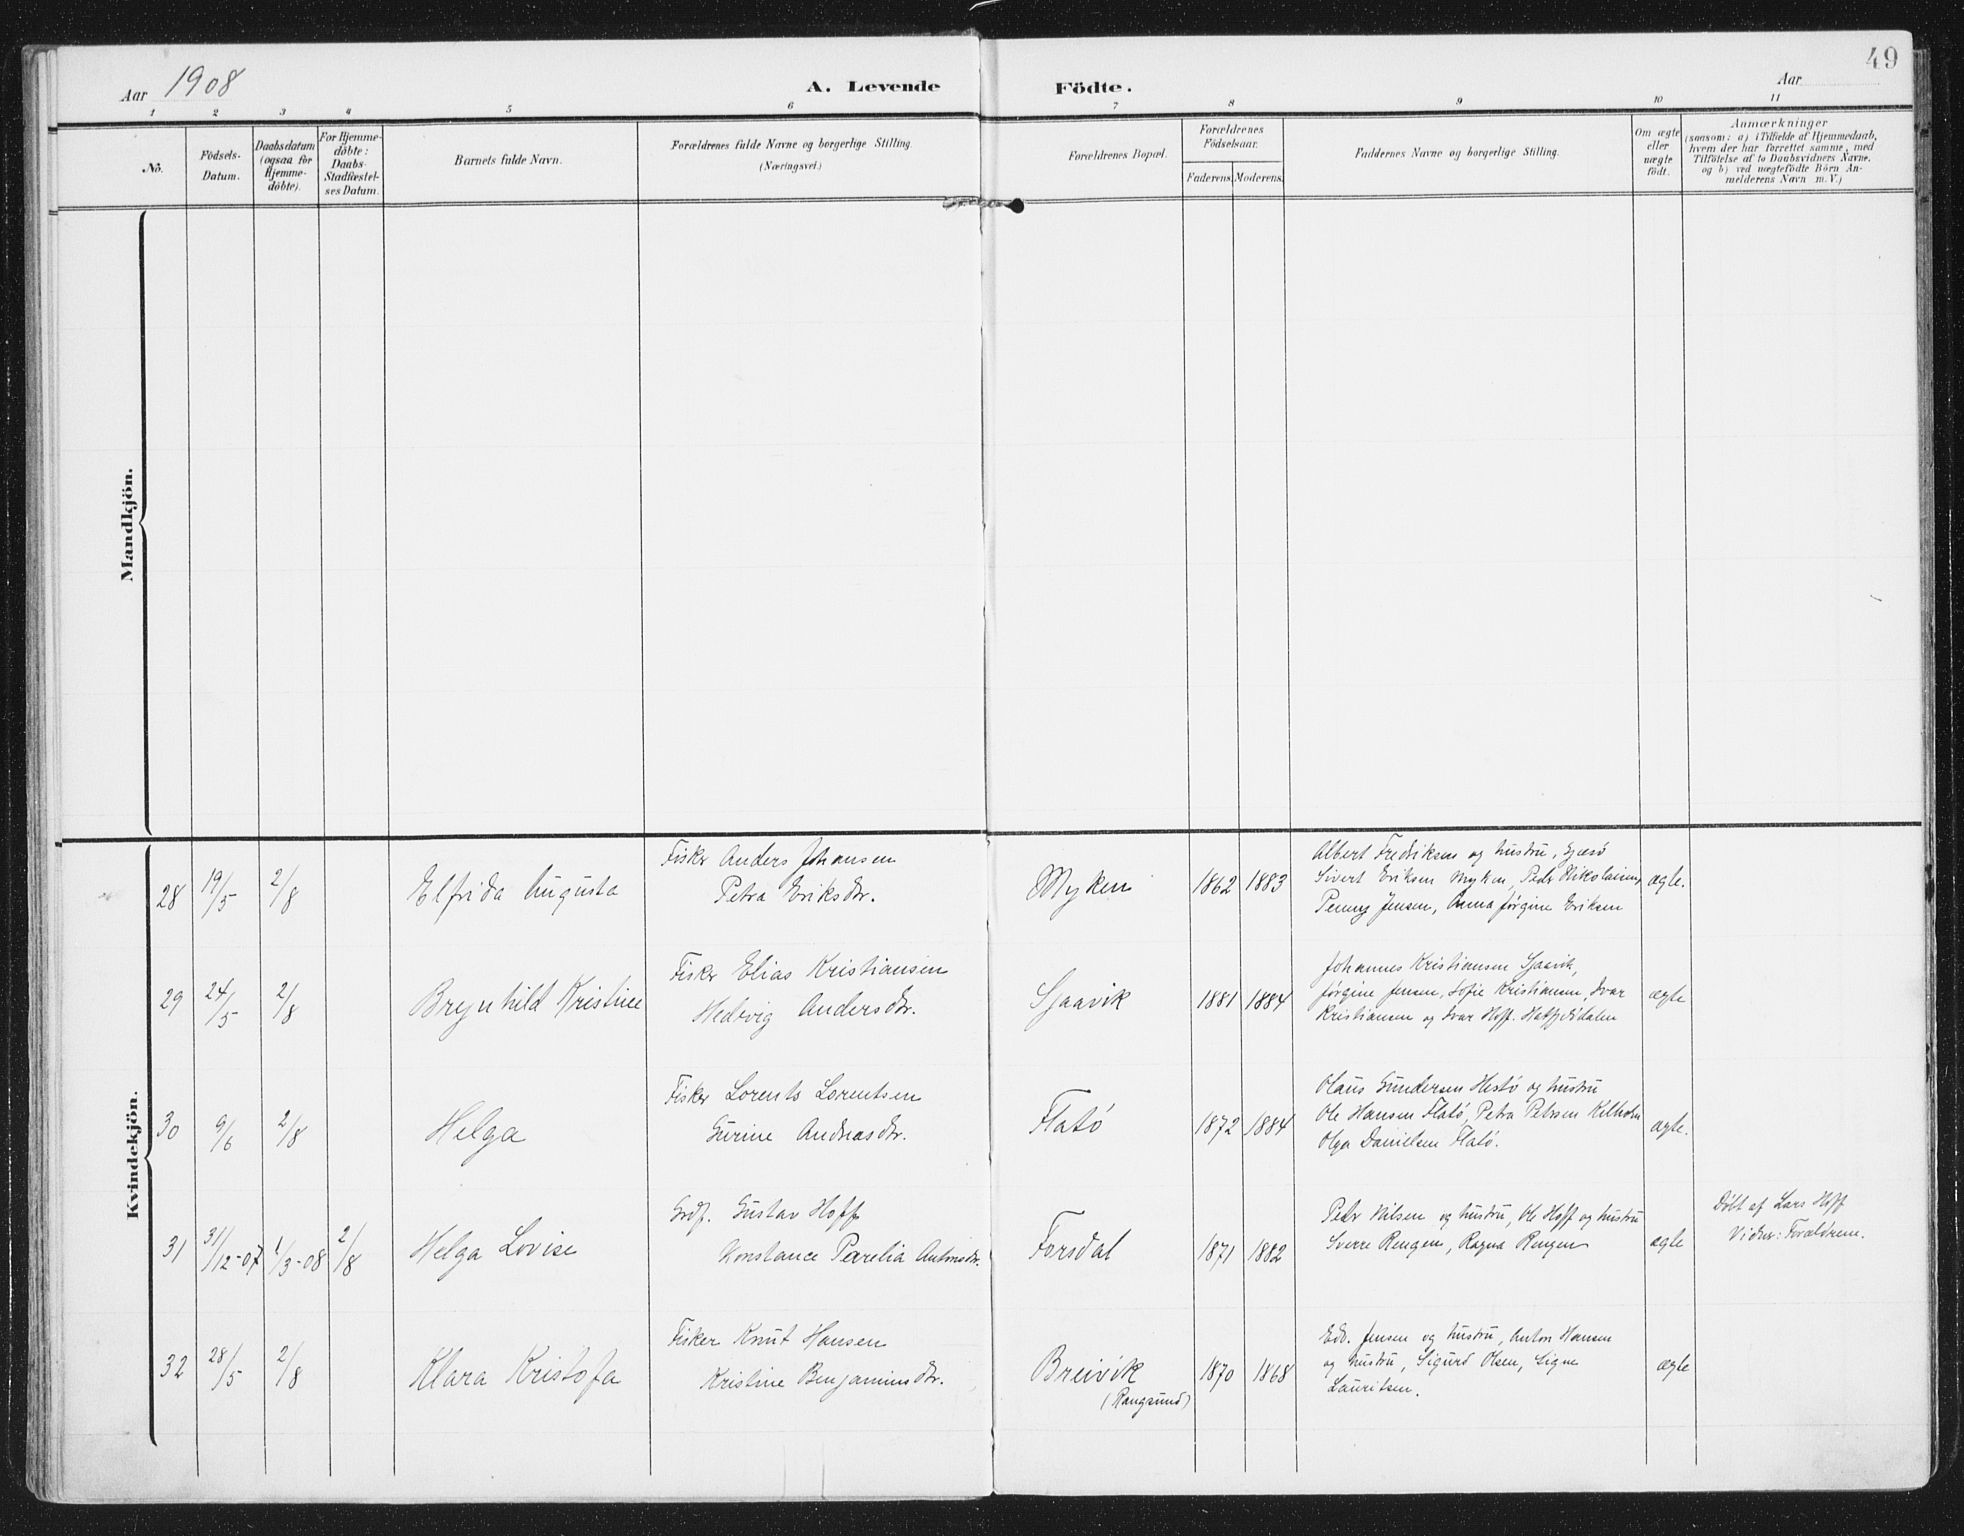 49
Aar 1908
A. Levende Födte.
Aar
1 2 3 4 5 6 7 8 9 10 11
No.
Födsels-Datum.
Daabsdatum (ogsaa for Hjemme-döbte).
For Hjemme-döbte: Daabs-Stadfæstel-ses Datum.
Barnets fulde Navn.
Forældrenes fulde Navne og borgerlige Stilling. (Næringsvei.)
Forældrenes Bopæl.
Forældrenes Födselsaar.
Faderens. Moderens.
Faddernes Navne og borgerlige Stilling.
Om ægte eller uægte födt.
Anmærkninger
(saasom: a) i Tilfælde af Hjemmedaab, hvem der har forrettet samme, med Tilföielse af to Daabsvidners Navne, og b) ved uægtefödte Börn An-melderens Navn m. V.)
Mandkjön.
Kvindekjön.
28 19/5 2/8 Elfrida Augusta
Fisker Anders Johansen
Petra Eriksdtr.
Myken 1862 1883
Albert Fredriksen og hustru, Gjæsö
Sivert Eriksen Myken, Pedr Nikolaisen,
Penny Jensen, Anna Jørgine Eriksen
ægte.
29 24/5 2/8 Brynhild Kristine
Fisker Elias Kristiansen
Hedvig Andersdtr.
Sjaavik 1881 1884
Johannes Kristiansen Sjaavik,
Jørgine Jensen, Sofie Kristiansen, Ivar
Kristiansen og Ivar Hoff. Hatfjelddalen
ægte
30 9/6 2/8 Helga
Fisker Lorents Lorentsen
Gurine Andreasdtr.
Flatö 1872 1884
Olaus Gundersen Hestö og hustru
Ole Hansen Flatö, Petra Petersen Kilholm
Olga Danielsen Flatö.
ægte.
31 31/12-07 1/3-08 2/8 Helga Lovise
Grdf. Gustav Hoff
Konstance Parelia Antonsdtr.
Forsdal 1871 1882
Pedr Nilsen og hustru, Ole Hoff og hustru
Sverre Rengen, Ragna Rengen
ægte
Döbt af Lars Hoff
Vidner: Forældrene.
32 28/5 2/8 Klara Kristofa
Fisker Knut Hansen
Kristine Benjaminsdtr.
Breivik 1870 1868
(Rangsund)
Edv. Jensen og hustru, Anton Hansen
og hustru, Sigurd Olsen, Signe
Lauritsen.
ægte